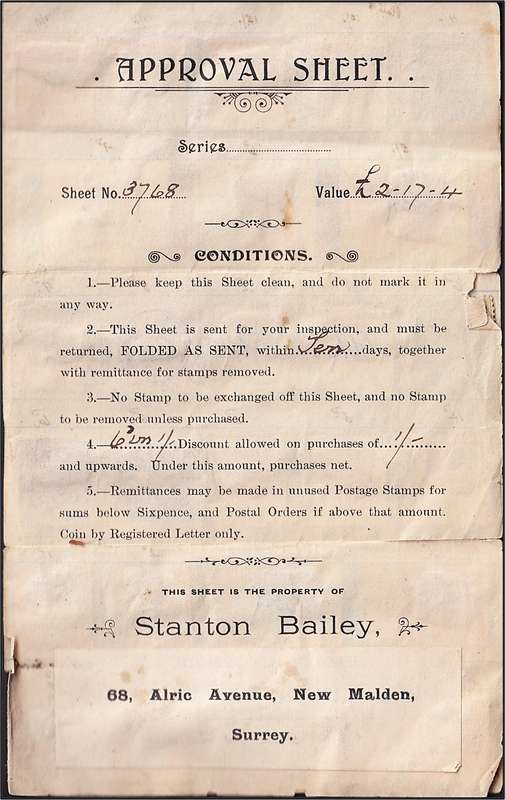 . APPROVAL SHEET. .
Series
Sheet No. 3768 Value £2-17-4
CONDITIONS.
1.—Please keep this Sheet clean, and do not mark it in
any way.
2.—This Sheet is sent for your inspection, and must be
returned, FOLDED AS SENT, within Ten days, together
with remittance for stamps removed.
3.—No Stamp to be exchanged off this Sheet, and no Stamp
to be removed unless purchased.
4.— 6d in 1/- Discount allowed on purchases of 1/-
and upwards. Under this amount, purchases net.
5.—Remittances may be made in unused Postage Stamps for
sums below Sixpence, and Postal Orders if above that amount.
Coin by Registered Letter only.
THIS SHEET IS THE PROPERTY OF
Stanton Bailey,
68, Alric Avenue, New Malden,
Surrey.